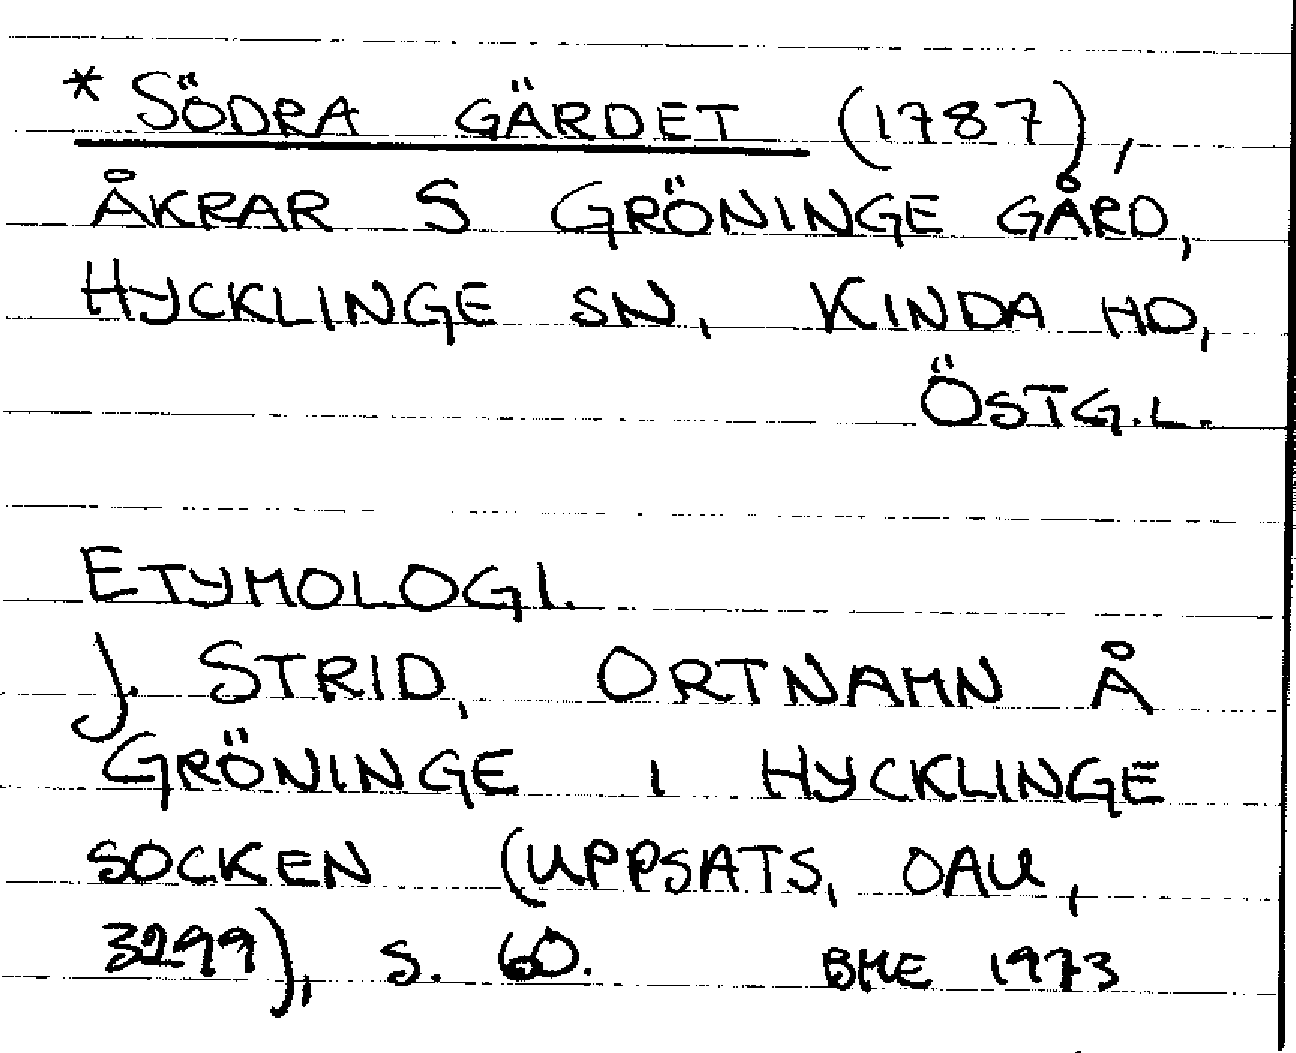 * SÖDRA GÄRDET (1787),
ÅKRAR S GRÖNINGE GÅRD,
HYCKLINGE SN, KINDA HD,
ÖSTG.L.
ETYMOLOGI.
J. STRID, ORTNAMN Å
GRÖNINGE I HYCKLINGE
SOCKEN (UPPSATS, OAU,
3299), S. 60. BME 1973